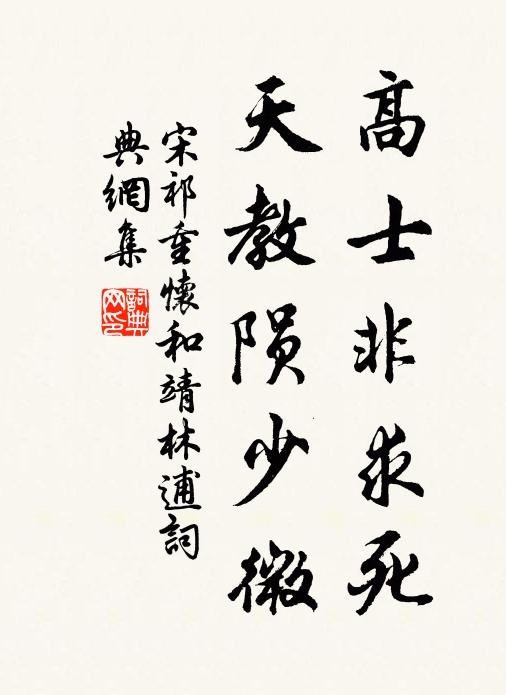 高士非求死
天教隕少微
宋祁重懷和靖林逋詞
典網集
詞典網印